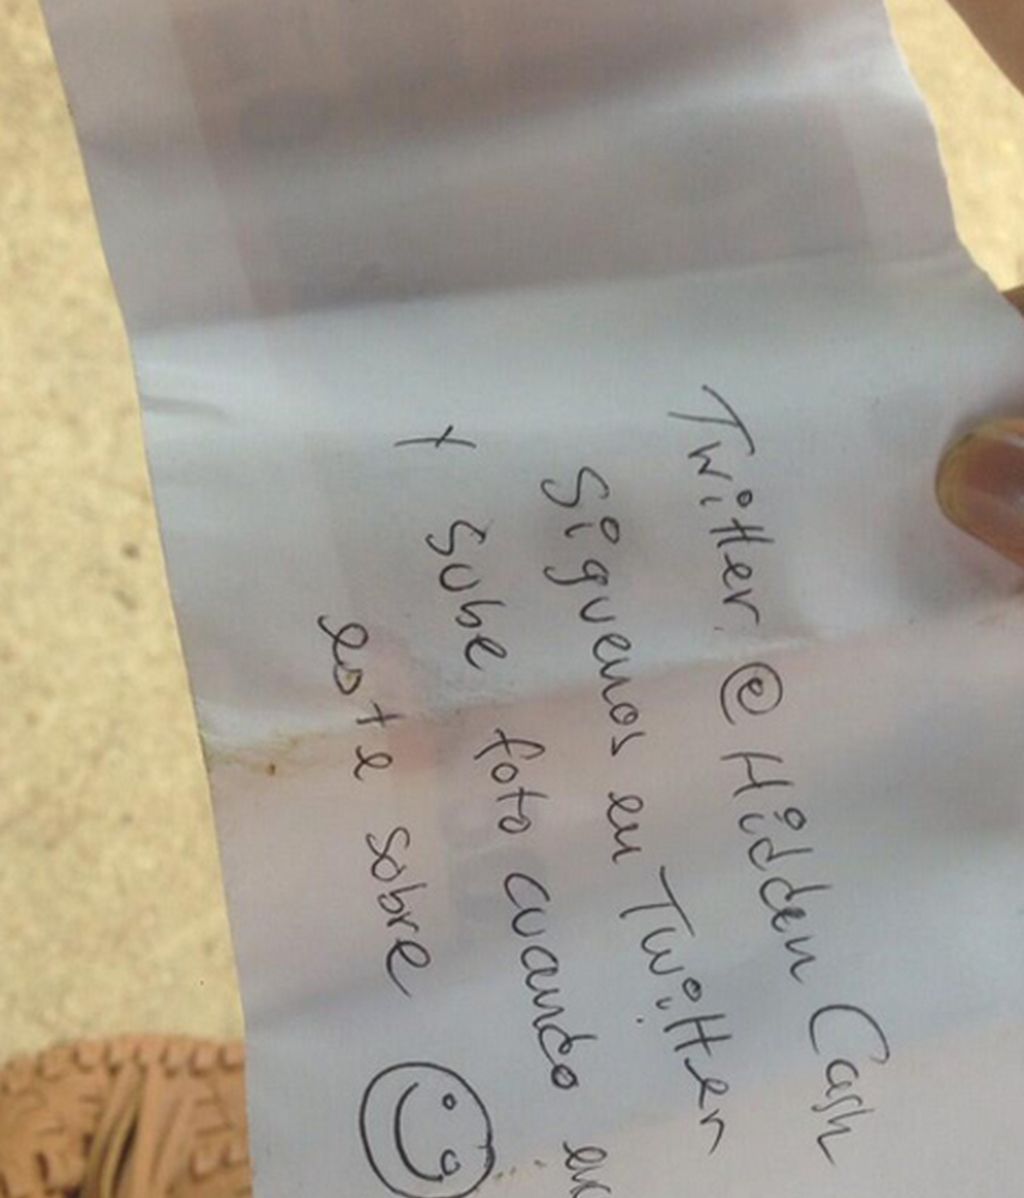 Twitter @ Hidden Cash
Siguenos en Twitter
y sube foto cuando
este sobre